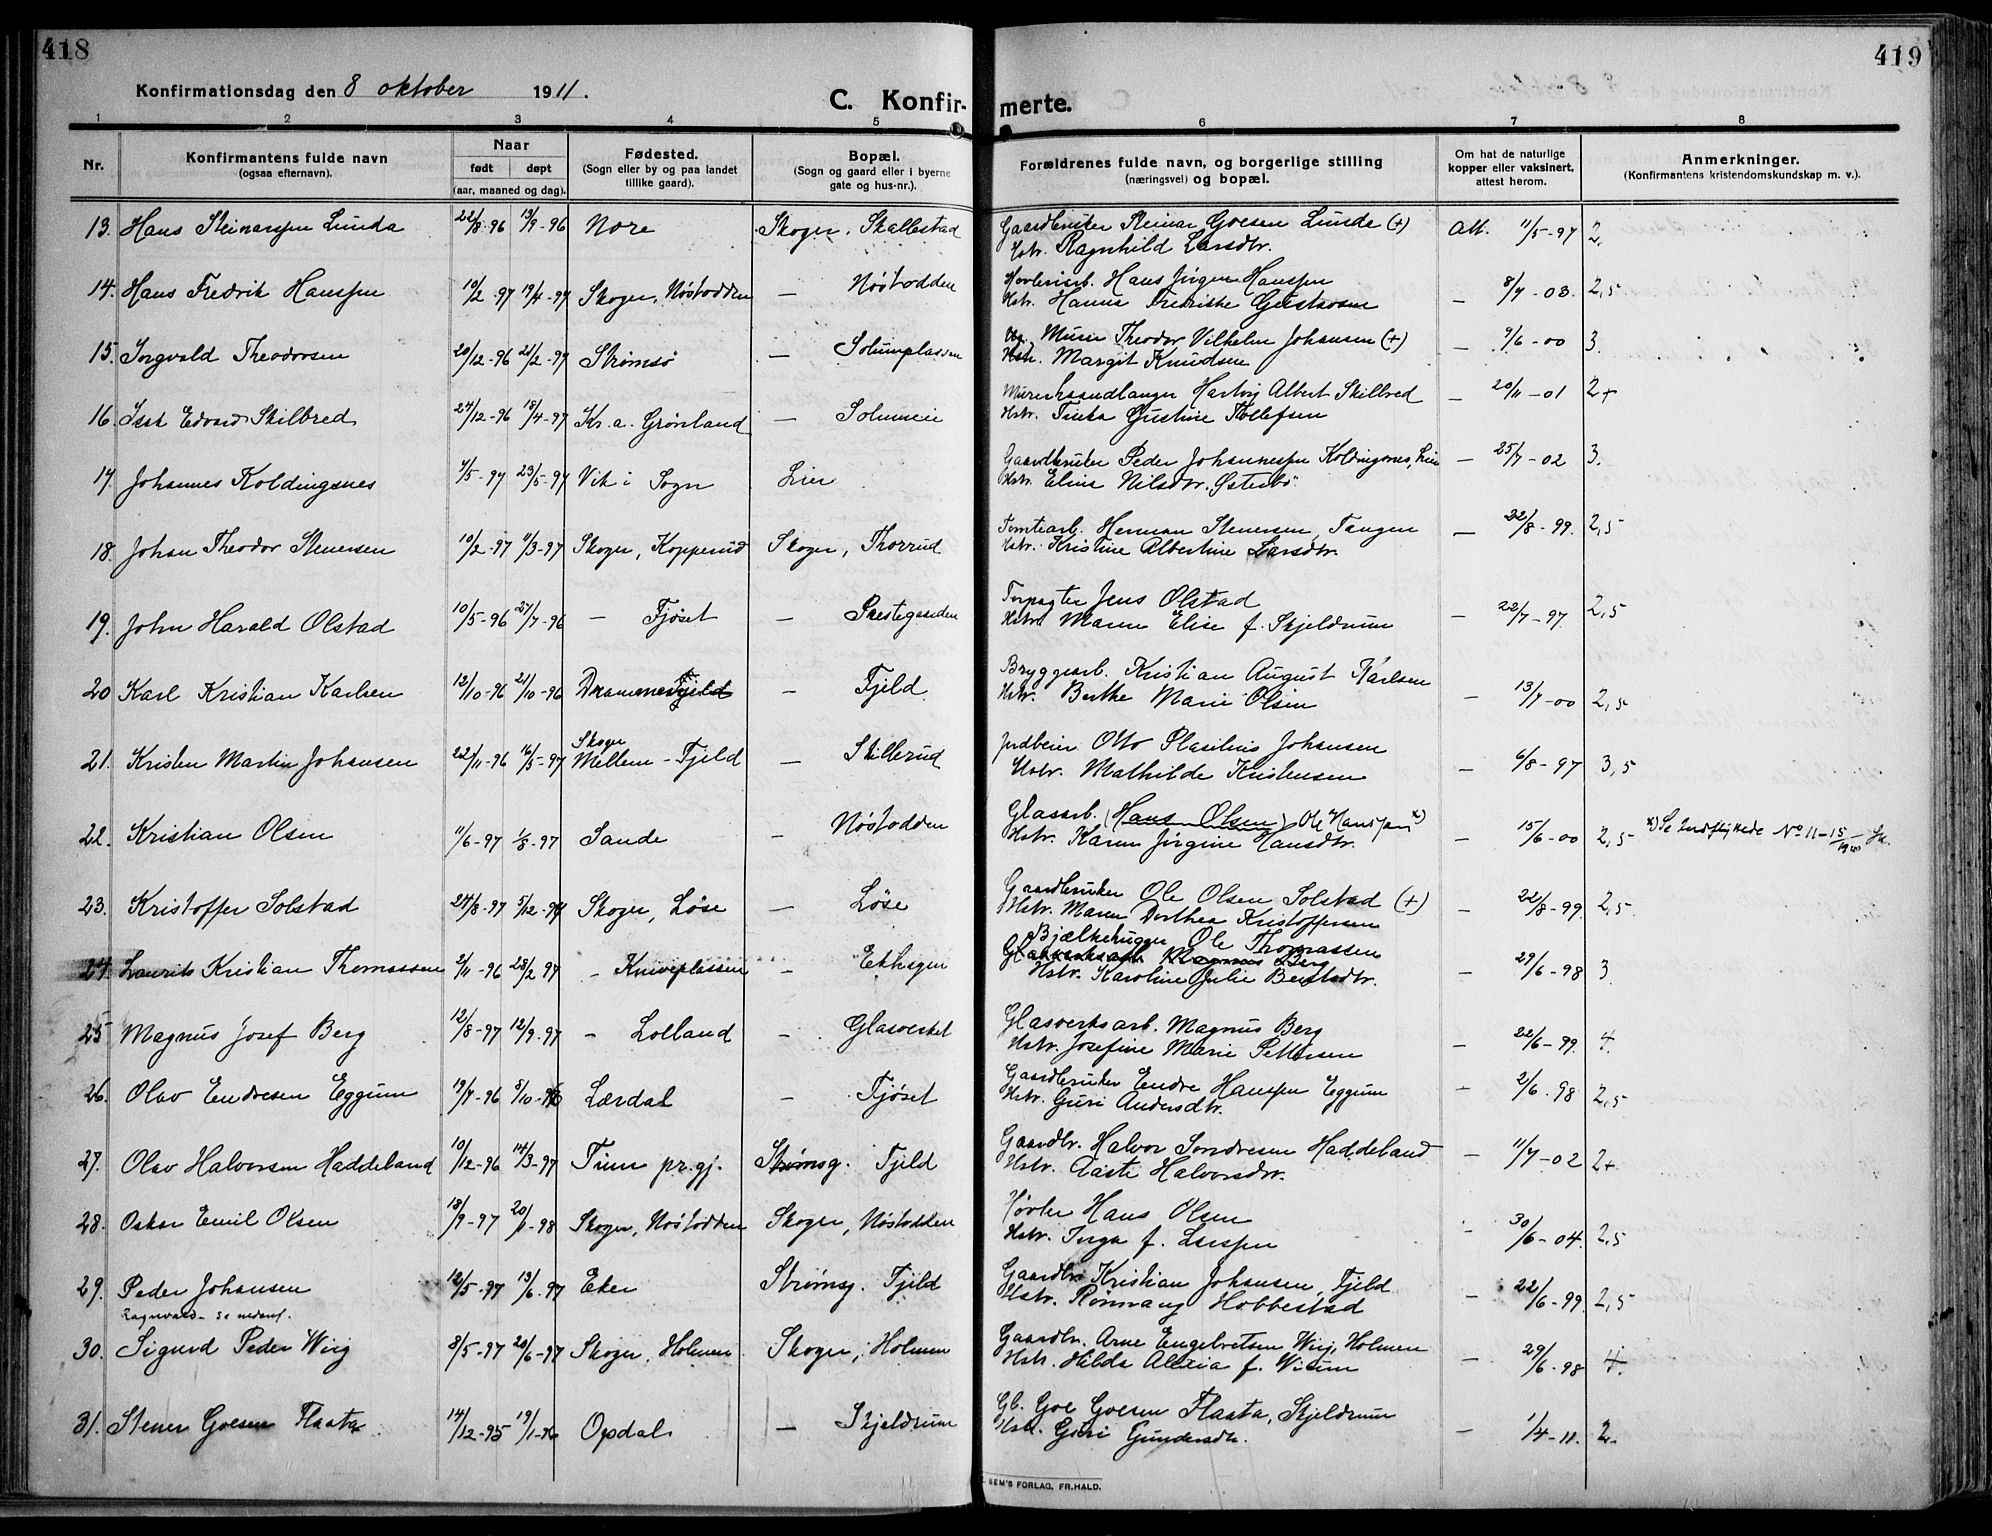 418
419
Konfirmationsdag den 8 oktober 1911.
C. Konfirmerte.
1 2 3 4 5 6 7 8
Nr.
Konfirmantens fulde navn
(ogsaa efternavn).
Naar
født døpt
(aar, maaned og dag).
Fødested.
(Sogn eller by og paa landet
tillike gaard).
Bopæl.
(Sogn og gaard eller i byerne
gate og hus-nr.).
Forældrenes fulde navn, og borgerlige stilling
(næringsvei) og bopæl.
Om hat de naturlige
kopper eller vaksinert,
attest herom.
Anmerkninger.
(Konfirmantens kristendomskundskap m. v.).
13. Hans Steinarssen Lunda 22/8-96 13/9-96 Nore Skoger, Skallestad Gaardbruker Steinar Goesen Lunda (+) Att. 11/5-97 2.
Hstr. Ragnhild Larsdtr.
14. Hans Fredrik Hanssen 10/2-97 19/4-97 Skoger, Nøstodden — Nøstodden Høvleriarb. Hans Jørgen Hanssen — 8/7-03. 2,5
Hstr. Hanna Fredrikke Gustavsen
15. Ingvald Theodorsen 20/12-96 21/2-97 Strømsø — Solumplassen Murer Theodor Vilhelm Johansen (+) — 9/6-00 3.
Hstr. Margit Knudsen
16. Isak Edvard Skilbred 24/12-96 18/4-97 Kr.a. Grønland — Solumeie Murerhaandlanger Hartvig Albert Skilbred — 20/11-01 2+
Hstr. Tinka Gustine Tollefsen
17. Johannes Koldingsnes 4/5-97 23/5-97 Vik i Sogn Lier Gaardbruker Peder Johannessen Koldingsnes, Lier — 25/7-02 3.
Hstr. Elina Nilsdtr. Østerbø
18. Johan Theodor Stenersen 10/2-97 11/3-97 Skoger, Kopperud Skoger, Thorrud Tomtearb. Herman Stenersen, Tangen — 22/8-99. 2,5
Hstr. Kristine Albertine Larsdtr.
19. John Harald Olstad 10/5-96 27/7-96 — Fjøset — Prestegaarden Forpagter Jens Olstad — 22/7-97. 2,5
Hstr. Maren Elise f. Skjeldrum
20 Karl Kristian Karlsen 12/10-96 21/10-96 Drammen — Fjeld Bryggearb. Kristian August Karlsen — 13/7-00 2,5
Hstr. Berthe Marie Olsen
21. Kristen Martin Johansen 22/11-96 16/5-97 Skoger Mellem-Fjeld — Skillerud Indbeier Otto Plasilius Johansen — 6/8-97 3,5
Hstr. Mathilde Kristensen
22. Kristian Olsen 11/6-97 1/8-97 Sande — Nøstodden Glasarb. (Hans Olsen) Ole Hanssen x) — 15/6-00 2,5 x) Se Indflyttede No 11-15/
Hstr. Karen Jørgine Hansdtr.
23. Kristoffer Solstad 24/8-97 5/12-97 Skoger, Løse — Løse Gaardbruker Ole Olsen Solstad (+) — 22/8-99. 2,5.
Hstr. Maren Dorthea Kristoffersen
24. Laurits Kristian Thomassen 2/11-96 28/2-97 — Kniveplassen — Ekhagen Bjælkehugger Ole Thomassen — 29/6-98 3
Glasverksarb. Magnus Berg
Hstr. Karoline Julie Berntsdtr.
25 Magnus Josef Berg 12/8-97 12/9-97 — Lolland — Glasverket Glasverksarb. Magnus Berg — 22/6-99. 4.
Hstr. Josefine Marie Pettersen
26. Olav Endresen Eggum 19/7-96 5/10-96 Lærdal — Fjøset Gaardbruker Endre Hanssen Eggum — 2/6.98 2,5
Hstr. Guri Andersdtr.
27. Olav Halvorsen Haddeland 10/12-96 14/3-97 Tinn pr.gj. Strømsg. Fjeld Gaardbr. Halvor Sondresen Haddeland — 11/7-02 2+
Hstr. Aaste Halvorsdtr.
28. Oskar Emil Olsen 18/9-97 20/1-98 Skoger, Nøstodden Skoger, Nøstodden Høvler Hans Olsen — 30/6-04. 2,5
Hstr. Inga f. Larssen
29. Peder Johansen 12/5-97 13/6-97 Eker Strømsg. Fjeld Gaardbr. Kristian Johansen, Fjeld — 22/6-99. 2,5
Hstr. Rønnaug Hobbestad
Ragnvald - se nedenf.
30. Sigurd Peder Wiig 8/5-97 20/6-97 Skoger, Holmen Skoger, Holmen Gaardbr. Arne Engebretsen Wiig, Holmen — 29/6-98 4.
Hstr. Hilda Alexia f. Wiium
31. Stener Goesen Flaata 14/12-95 19/1-96 Opdal — Skjeldrum Gb. Goe Goesen Flaata, Skjeldrum — 1/4-11. 2.
Hstr. Guri Gundersdtr.
SEM'S FORLAG, FR.HALD.